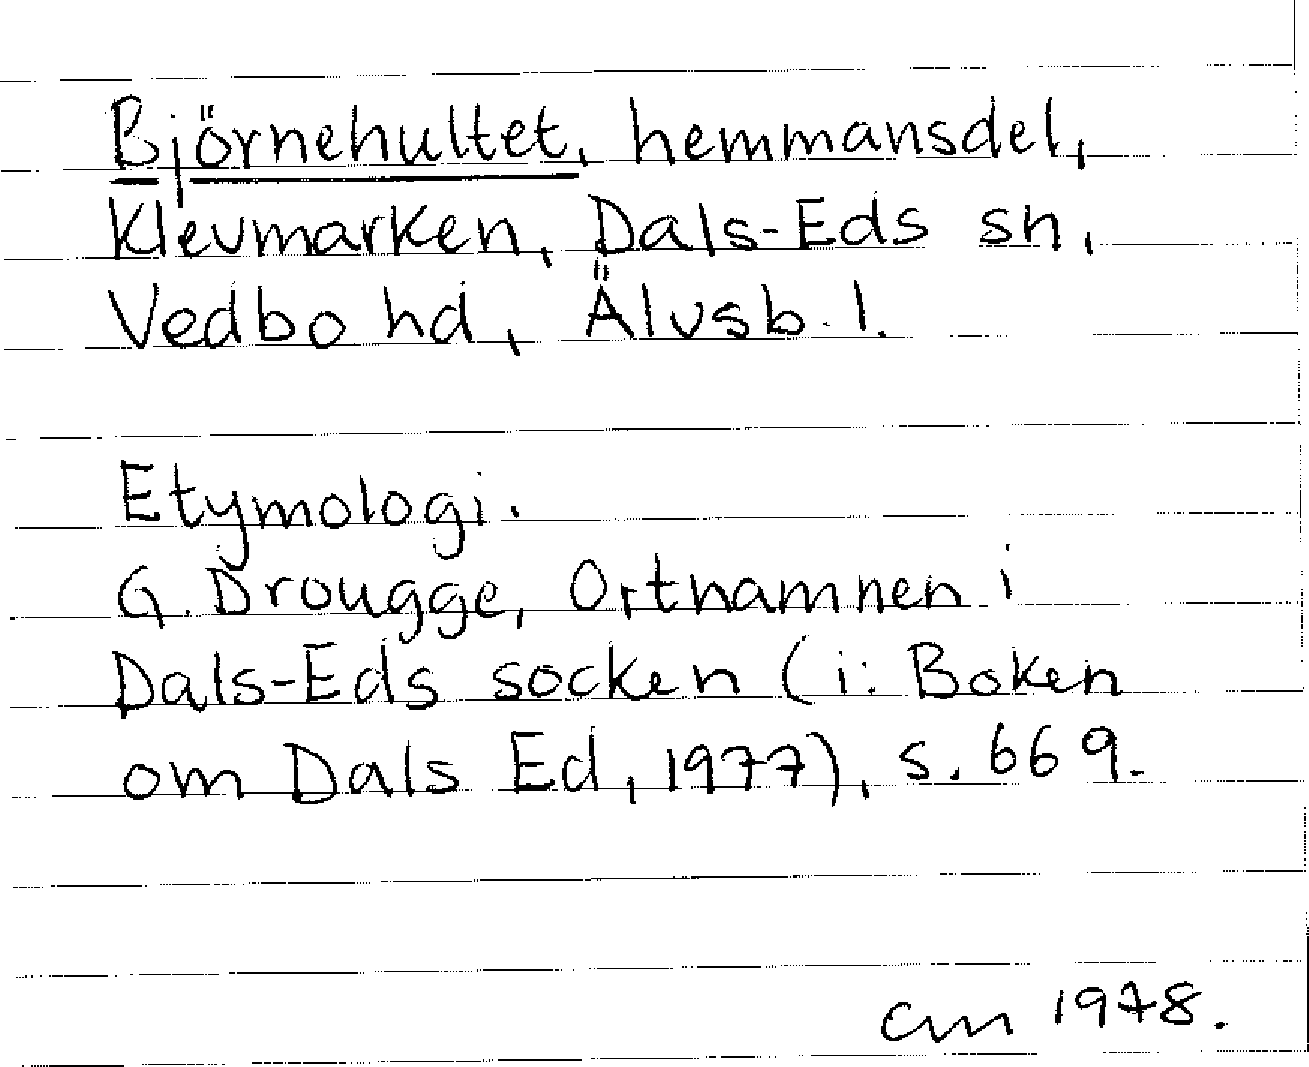 Björnehultet, hemmansdel,
Klevmarken, Dals-Eds sn,
Vedbo hd, Älvsb. l.
Etymologi.
G. Drougge, Ortnamnen i
Dals-Eds socken (i: Boken
om Dals Ed, 1977), s. 669.
cm 1978.